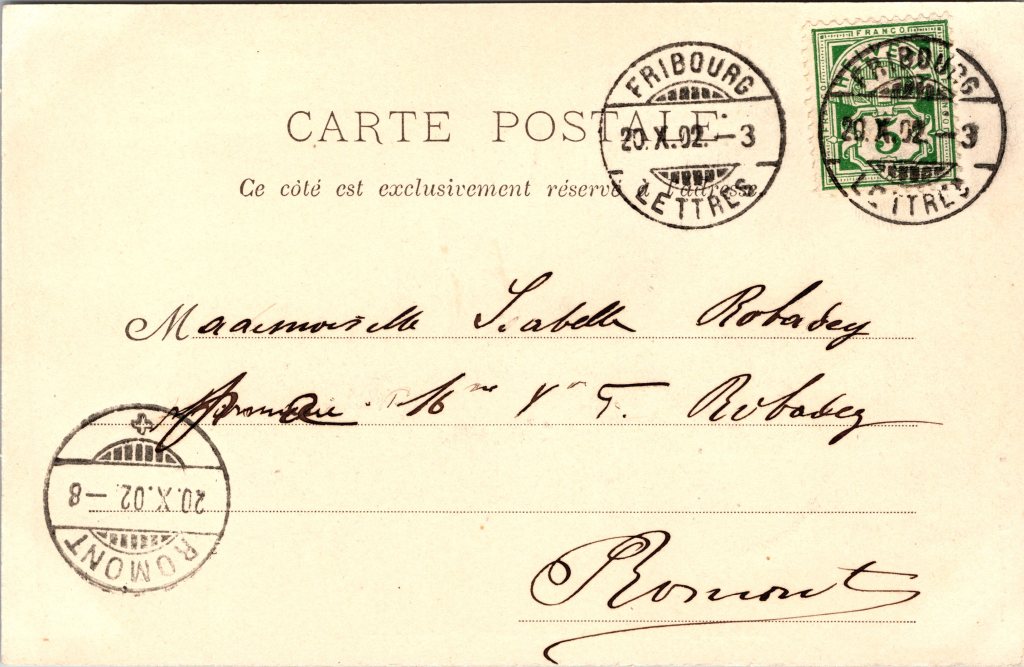 FRANCO
HELVETIA
5
FRIBOURG
20.X.02.–3
LETTRES
FRIBOURG
20.X.02.–3
LETTRES
CARTE POSTALE
Ce côté est exclusivement réservé à l'adresse.
Mademoiselle Isabelle Robadey
Mme Vve T. Robadey
20.X.02.–8
ROMONT
Romont